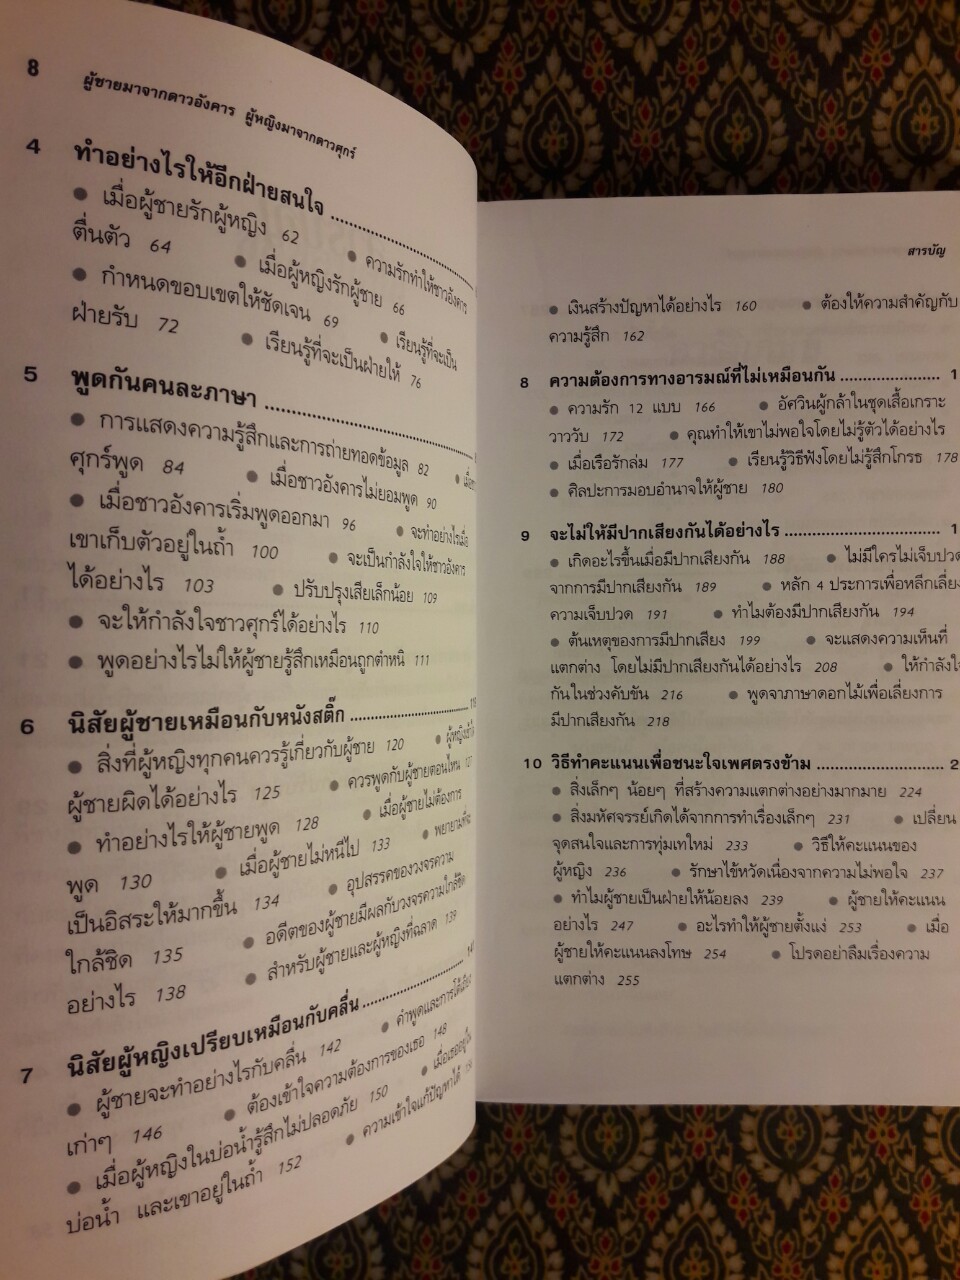 8
ผู้ชายมาจากดาวอังคาร ผู้หญิงมาจากดาวศุกร์
4 ทำอย่างไรให้อีกฝ่ายสนใจ
● เมื่อผู้ชายรักผู้หญิง 62 ● ความรักทำให้ชาวอังคาร
ตื่นตัว 64 ● เมื่อผู้หญิงรักผู้ชาย 66
● กำหนดขอบเขตให้ชัดเจน 69 ● เรียนรู้ที่จะเป็น
ฝ่ายรับ 72 ● เรียนรู้ที่จะเป็นฝ่ายให้ 76
5 พูดกันคนละภาษา
● การแสดงความรู้สึกและการถ่ายทอดข้อมูล 82 ●
ศุกร์พูด 84 ● เมื่อชาวอังคารไม่ยอมพูด 90
● เมื่อชาวอังคารเริ่มพูดออกมา 96 ● จะทำอย่างไรเมื่อ
เขาเก็บตัวอยู่ในถ้ำ 100 ● จะเป็นกำลังใจให้ชาวอังคาร
ได้อย่างไร 103 ● ปรับปรุงเสียเล็กน้อย 109
● จะให้กำลังใจชาวศุกร์ได้อย่างไร 110
● พูดอย่างไรไม่ให้ผู้ชายรู้สึกเหมือนถูกตำหนิ 111
6 นิสัยผู้ชายเหมือนกับหนังสติ๊ก
● สิ่งที่ผู้หญิงทุกคนควรรู้เกี่ยวกับผู้ชาย 120 ●
ผู้ชายผิดได้อย่างไร 125 ● ควรพูดกับผู้ชายตอนไหน 127
● ทำอย่างไรให้ผู้ชายพูด 128 ● เมื่อผู้ชายไม่ต้องการ
พูด 130 ● เมื่อผู้ชายไม่หนีไป 133 ● พยายามที่จะ
เป็นอิสระให้มากขึ้น 134 ● อุปสรรคของวงจรความ
ใกล้ชิด 135 ● อดีตของผู้ชายมีผลกับวงจรความใกล้ชิด
อย่างไร 138 ● สำหรับผู้ชายและผู้หญิงที่ฉลาด 139
7 นิสัยผู้หญิงเปรียบเหมือนกับคลื่น
● ผู้ชายจะทำอย่างไรกับคลื่น 142 ●
เก่าๆ 146 ● ต้องเข้าใจความต้องการของเธอ 148
● เมื่อผู้หญิงในบ่อน้ำรู้สึกไม่ปลอดภัย 150 ● เมื่อเธออยู่ใน
บ่อน้ำ และเขาอยู่ในถ้ำ 152 ● ความเข้าใจแก้ปัญหาได้
สารบัญ
● เงินสร้างปัญหาได้อย่างไร 160 ● ต้องให้ความสำคัญกับ
ความรู้สึก 162
8 ความต้องการทางอารมณ์ที่ไม่เหมือนกัน
● ความรัก 12 แบบ 166 ● อัศวินผู้กล้าในชุดเสื้อเกราะ
วาววับ 172 ● คุณทำให้เขาไม่พอใจโดยไม่รู้ตัวได้อย่างไร
● เมื่อเรือรักล่ม 177 ● เรียนรู้วิธีฟังโดยไม่รู้สึกโกรธ 178
● ศิลปะการมอบอำนาจให้ผู้ชาย 180
9 จะไม่ให้มีปากเสียงกันได้อย่างไร
● เกิดอะไรขึ้นเมื่อมีปากเสียงกัน 188 ● ไม่มีใครไม่เจ็บปวด
จากการมีปากเสียงกัน 189 ● หลัก 4 ประการเพื่อหลีกเลี่ยง
ความเจ็บปวด 191 ● ทำไมต้องมีปากเสียงกัน 194
● ต้นเหตุของการมีปากเสียง 199 ● จะแสดงความเห็นที่
แตกต่าง โดยไม่มีปากเสียงกันได้อย่างไร 208 ● ให้กำลังใจ
กันในช่วงคับขัน 216 ● พูดจาภาษาดอกไม้เพื่อเลี่ยงการ
มีปากเสียงกัน 218
10 วิธีทำคะแนนเพื่อชนะใจเพศตรงข้าม
● สิ่งเล็กๆ น้อยๆ ที่สร้างความแตกต่างอย่างมากมาย 224
● สิ่งมหัศจรรย์เกิดได้จากการทำเรื่องเล็กๆ 231 ● เปลี่ยน
จุดสนใจและการทุ่มเทใหม่ 233 ● วิธีให้คะแนนของ
ผู้หญิง 236 ● รักษาไข้หวัดเนื่องจากความไม่พอใจ 237
● ทำไมผู้ชายเป็นฝ่ายให้น้อยลง 239 ● ผู้ชายให้คะแนน
อย่างไร 247 ● อะไรทำให้ผู้ชายตั้งแง่ 253 ● เมื่อ
ผู้ชายให้คะแนนลงโทษ 254 ● โปรดอย่าลืมเรื่องความ
แตกต่าง 255